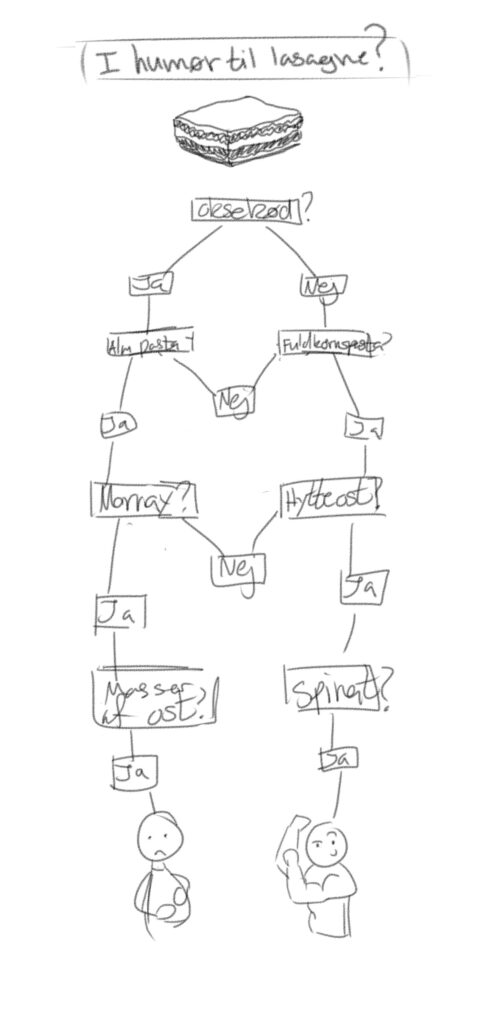 I humør til lasagne?
oksekød?
Ja
Nej
Alm pasta?
Fuldkornspasta?
Nej
Ja
Ja
Mornay?
Hytteost?
Nej
Ja
Ja
Masser
af ost?
Spinat?
Ja
Ja